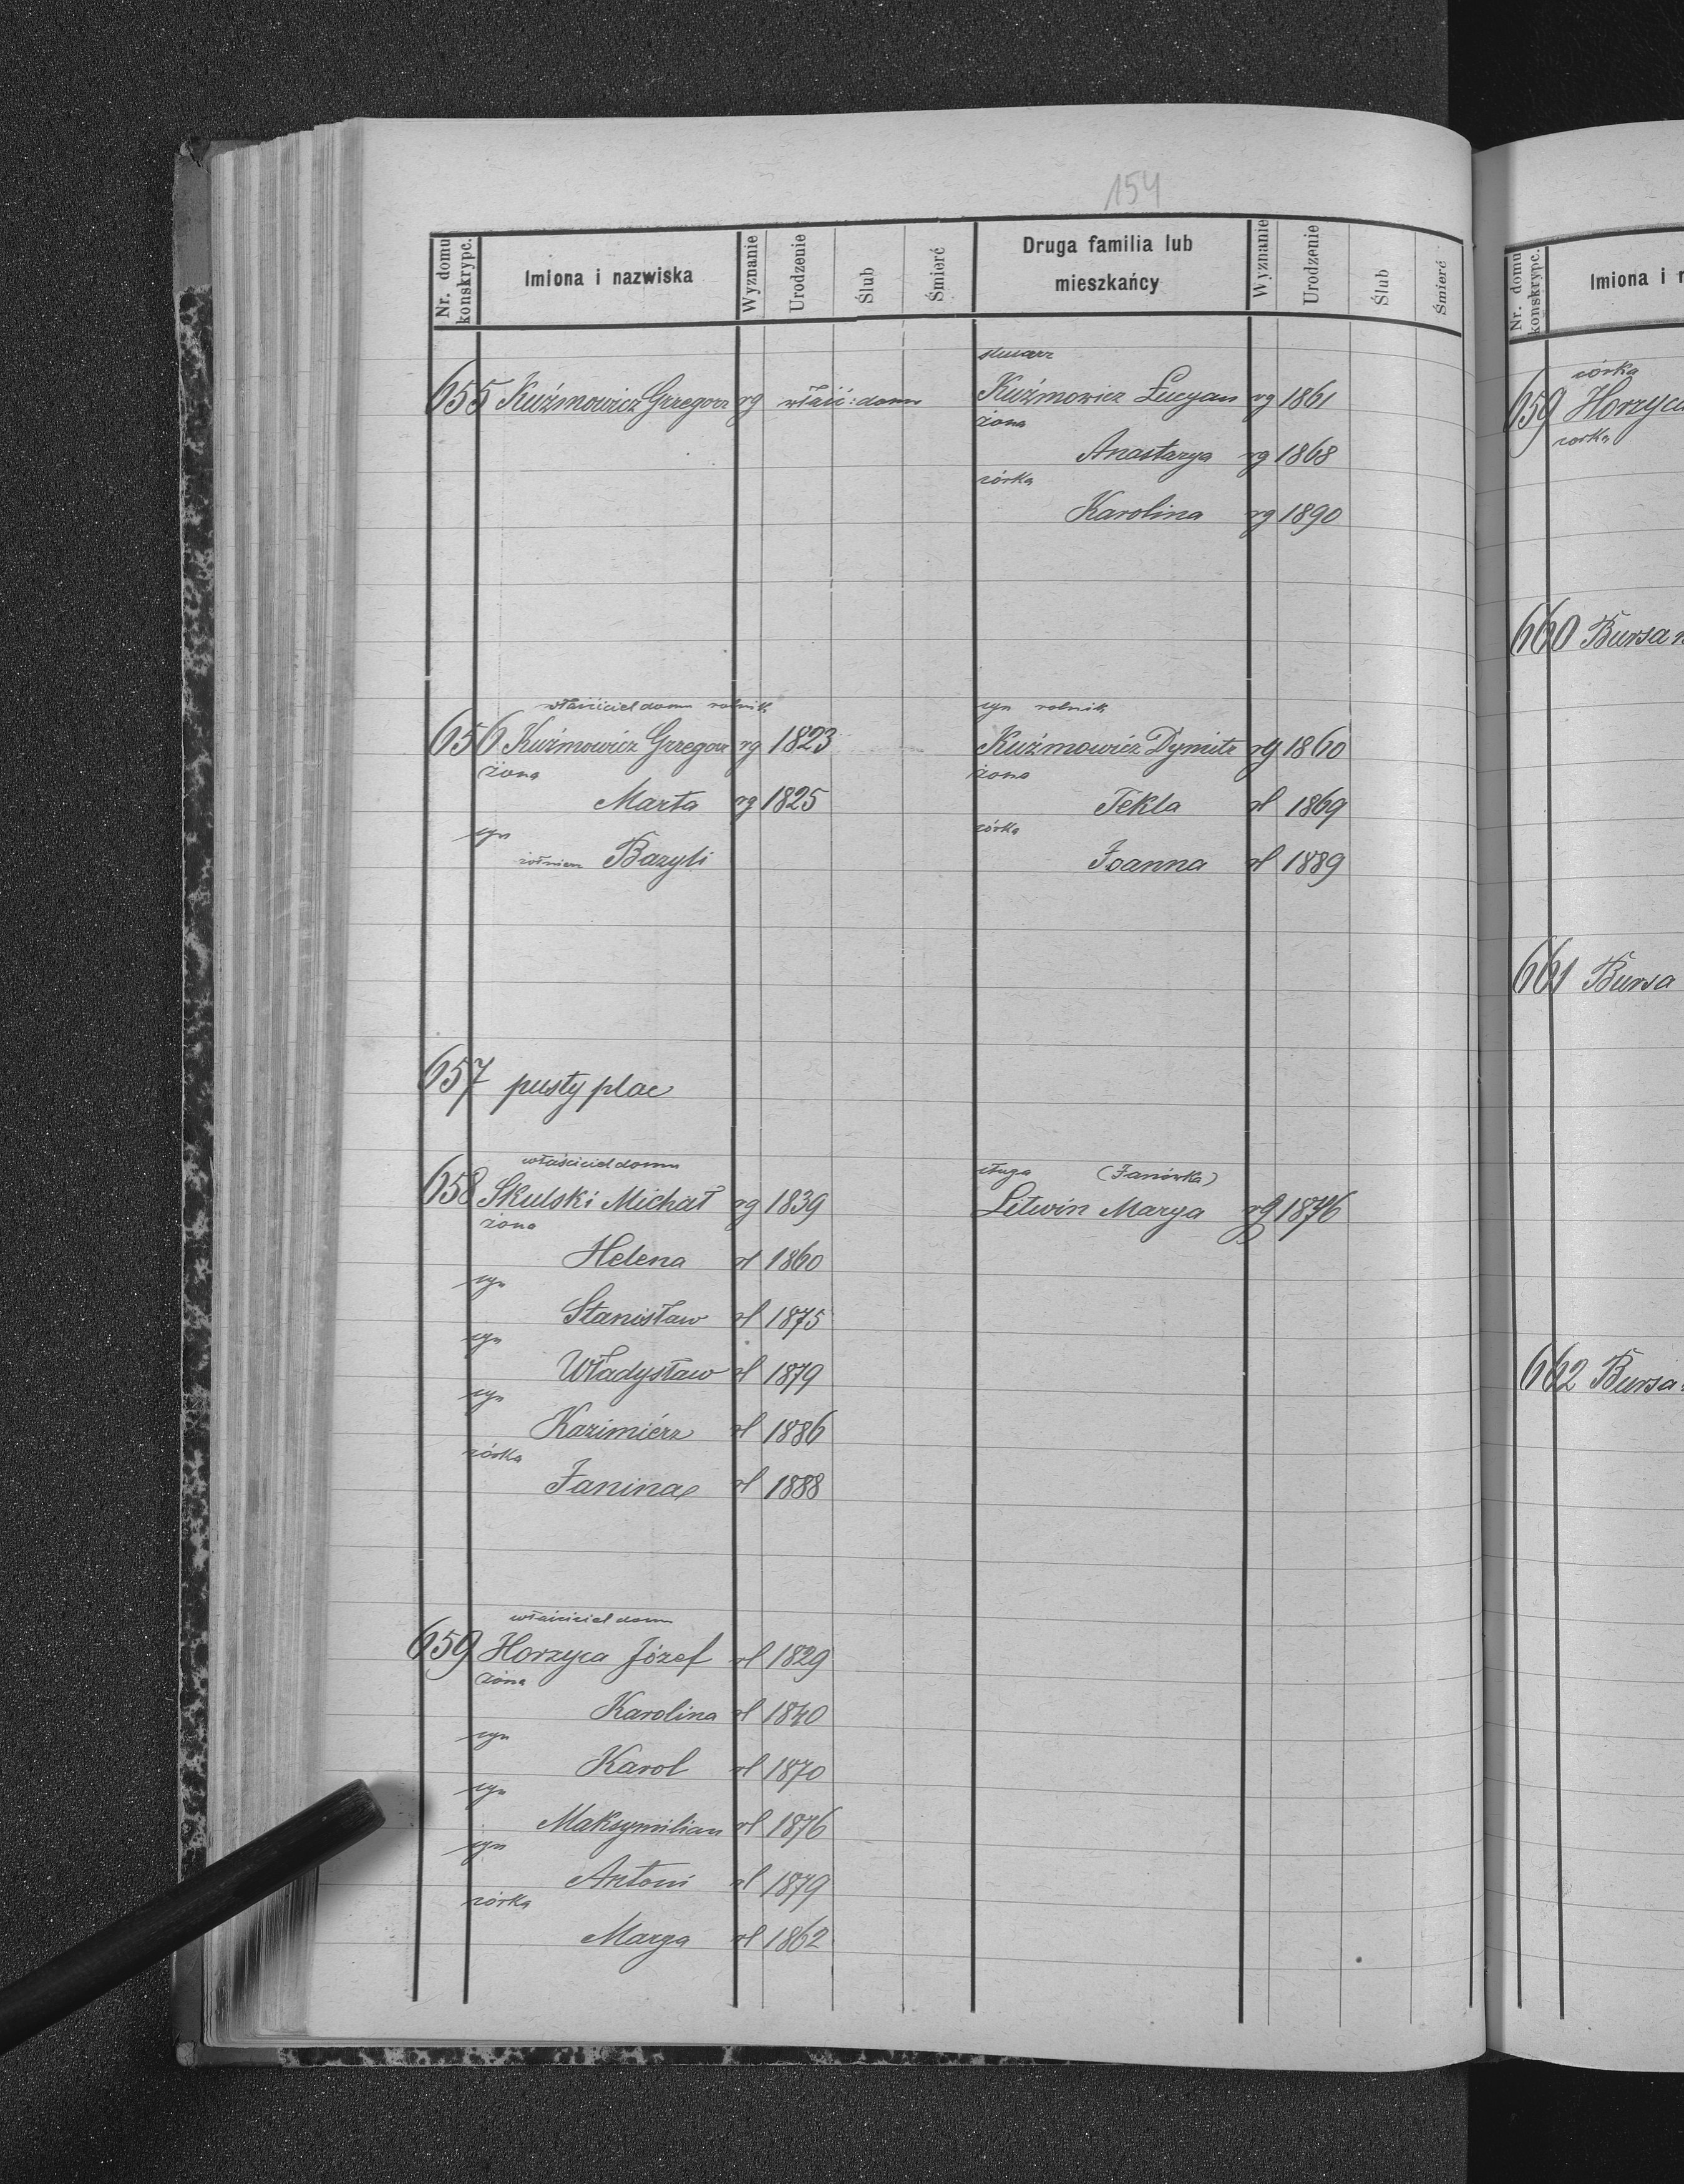 154
Nr. domu konskrypc.
Imiona i nazwiska
Wyznanie
Urodzenie
Ślub
Śmierć
Druga familia lub
mieszkańcy
Wyznanie
Urodzenie
Ślub
Śmierć
655 Kuźmowicz Grzegorz rg właśc: domu
ślusarz
Kuźmowicz Łucyan rg 1861
żona
Anastazya rg 1868
córka
Karolina rg 1890
właściciel domu rolnik
656 Kuźmowicz Grzegorz rg 1823
żona
Marta rg 1825
syn
żołnierz Bazyli
syn rolnik
Kuźmowicz Dymitr rg 1860
żona
Tekla rł 1869
córka
Joanna rł 1889
657 pusty plac
właściciel domu
658 Skulski Michał rg 1839
żona
Helena rł 1860
syn
Stanisław rł 1875
syn
Władysław rł 1879
syn
Kazimiérz rł 1886
córka
Janina rł 1888
sługa (Janówka)
Litwin Marya rg 1876
właściciel domu
659 Horzyca Józef rł 1829
żona
Karolina rł 1840
syn
Karol rł 1870
syn
Maksymilian rł 1876
syn
Antoni rł 1879
córka
Marya rł 1862
Nr. domu konskrypc.
Imiona i
córka
659 Horzyca
córka
660 Bursa
661 Bursa
662 Bursa